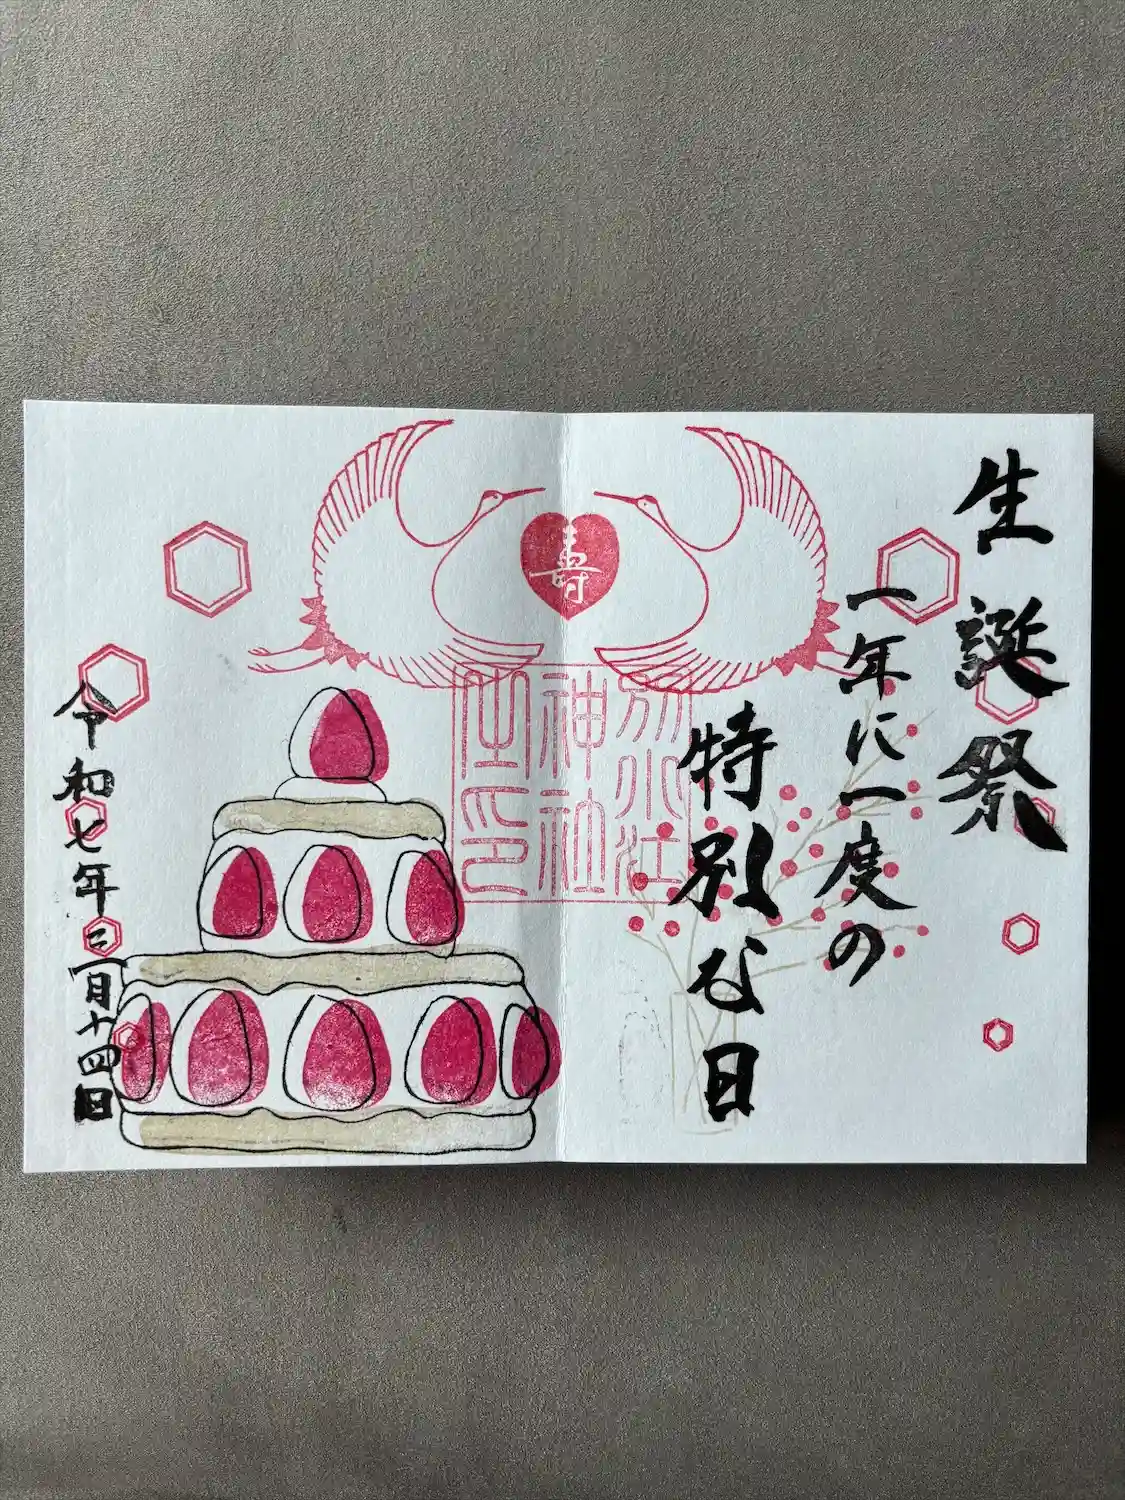 生誕祭
一年に一度の
特別な日
寿
別小江
神社
之印
令和七年三月十四日